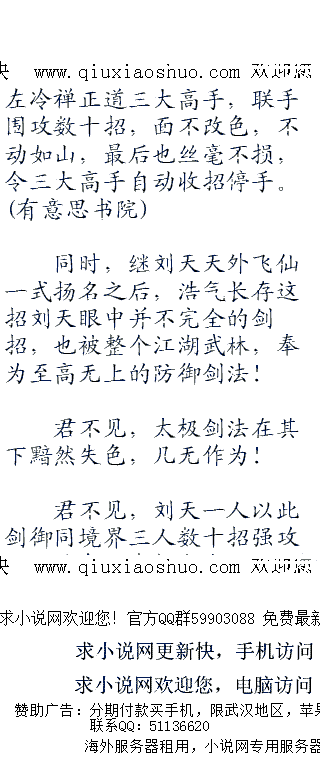 快 www.qiuxiaoshuo.com 欢迎您
左冷禅正道三大高手，联手
围攻数十招，面不改色，不
动如山，最后也丝毫不损，
令三大高手自动收招停手。
(有意思书院)
同时，继刘天天外飞仙
一式扬名之后，浩气长存这
招刘天眼中并不完全的剑
招，也被整个江湖武林，奉
为至高无上的防御剑法！
君不见，太极剑法在其
下黯然失色，几无作为！
君不见，刘天一人以此
剑御同境界三人数十招强攻
快 www.qiuxiaoshuo.com 欢迎您
求小说网欢迎您! 官方QQ群59903088 免费最新
求小说网更新快，手机访问
求小说网欢迎您，电脑访问
赞助广告：分期付款买手机，限武汉地区，苹果
联系QQ：51136620
海外服务器租用，小说网专用服务器